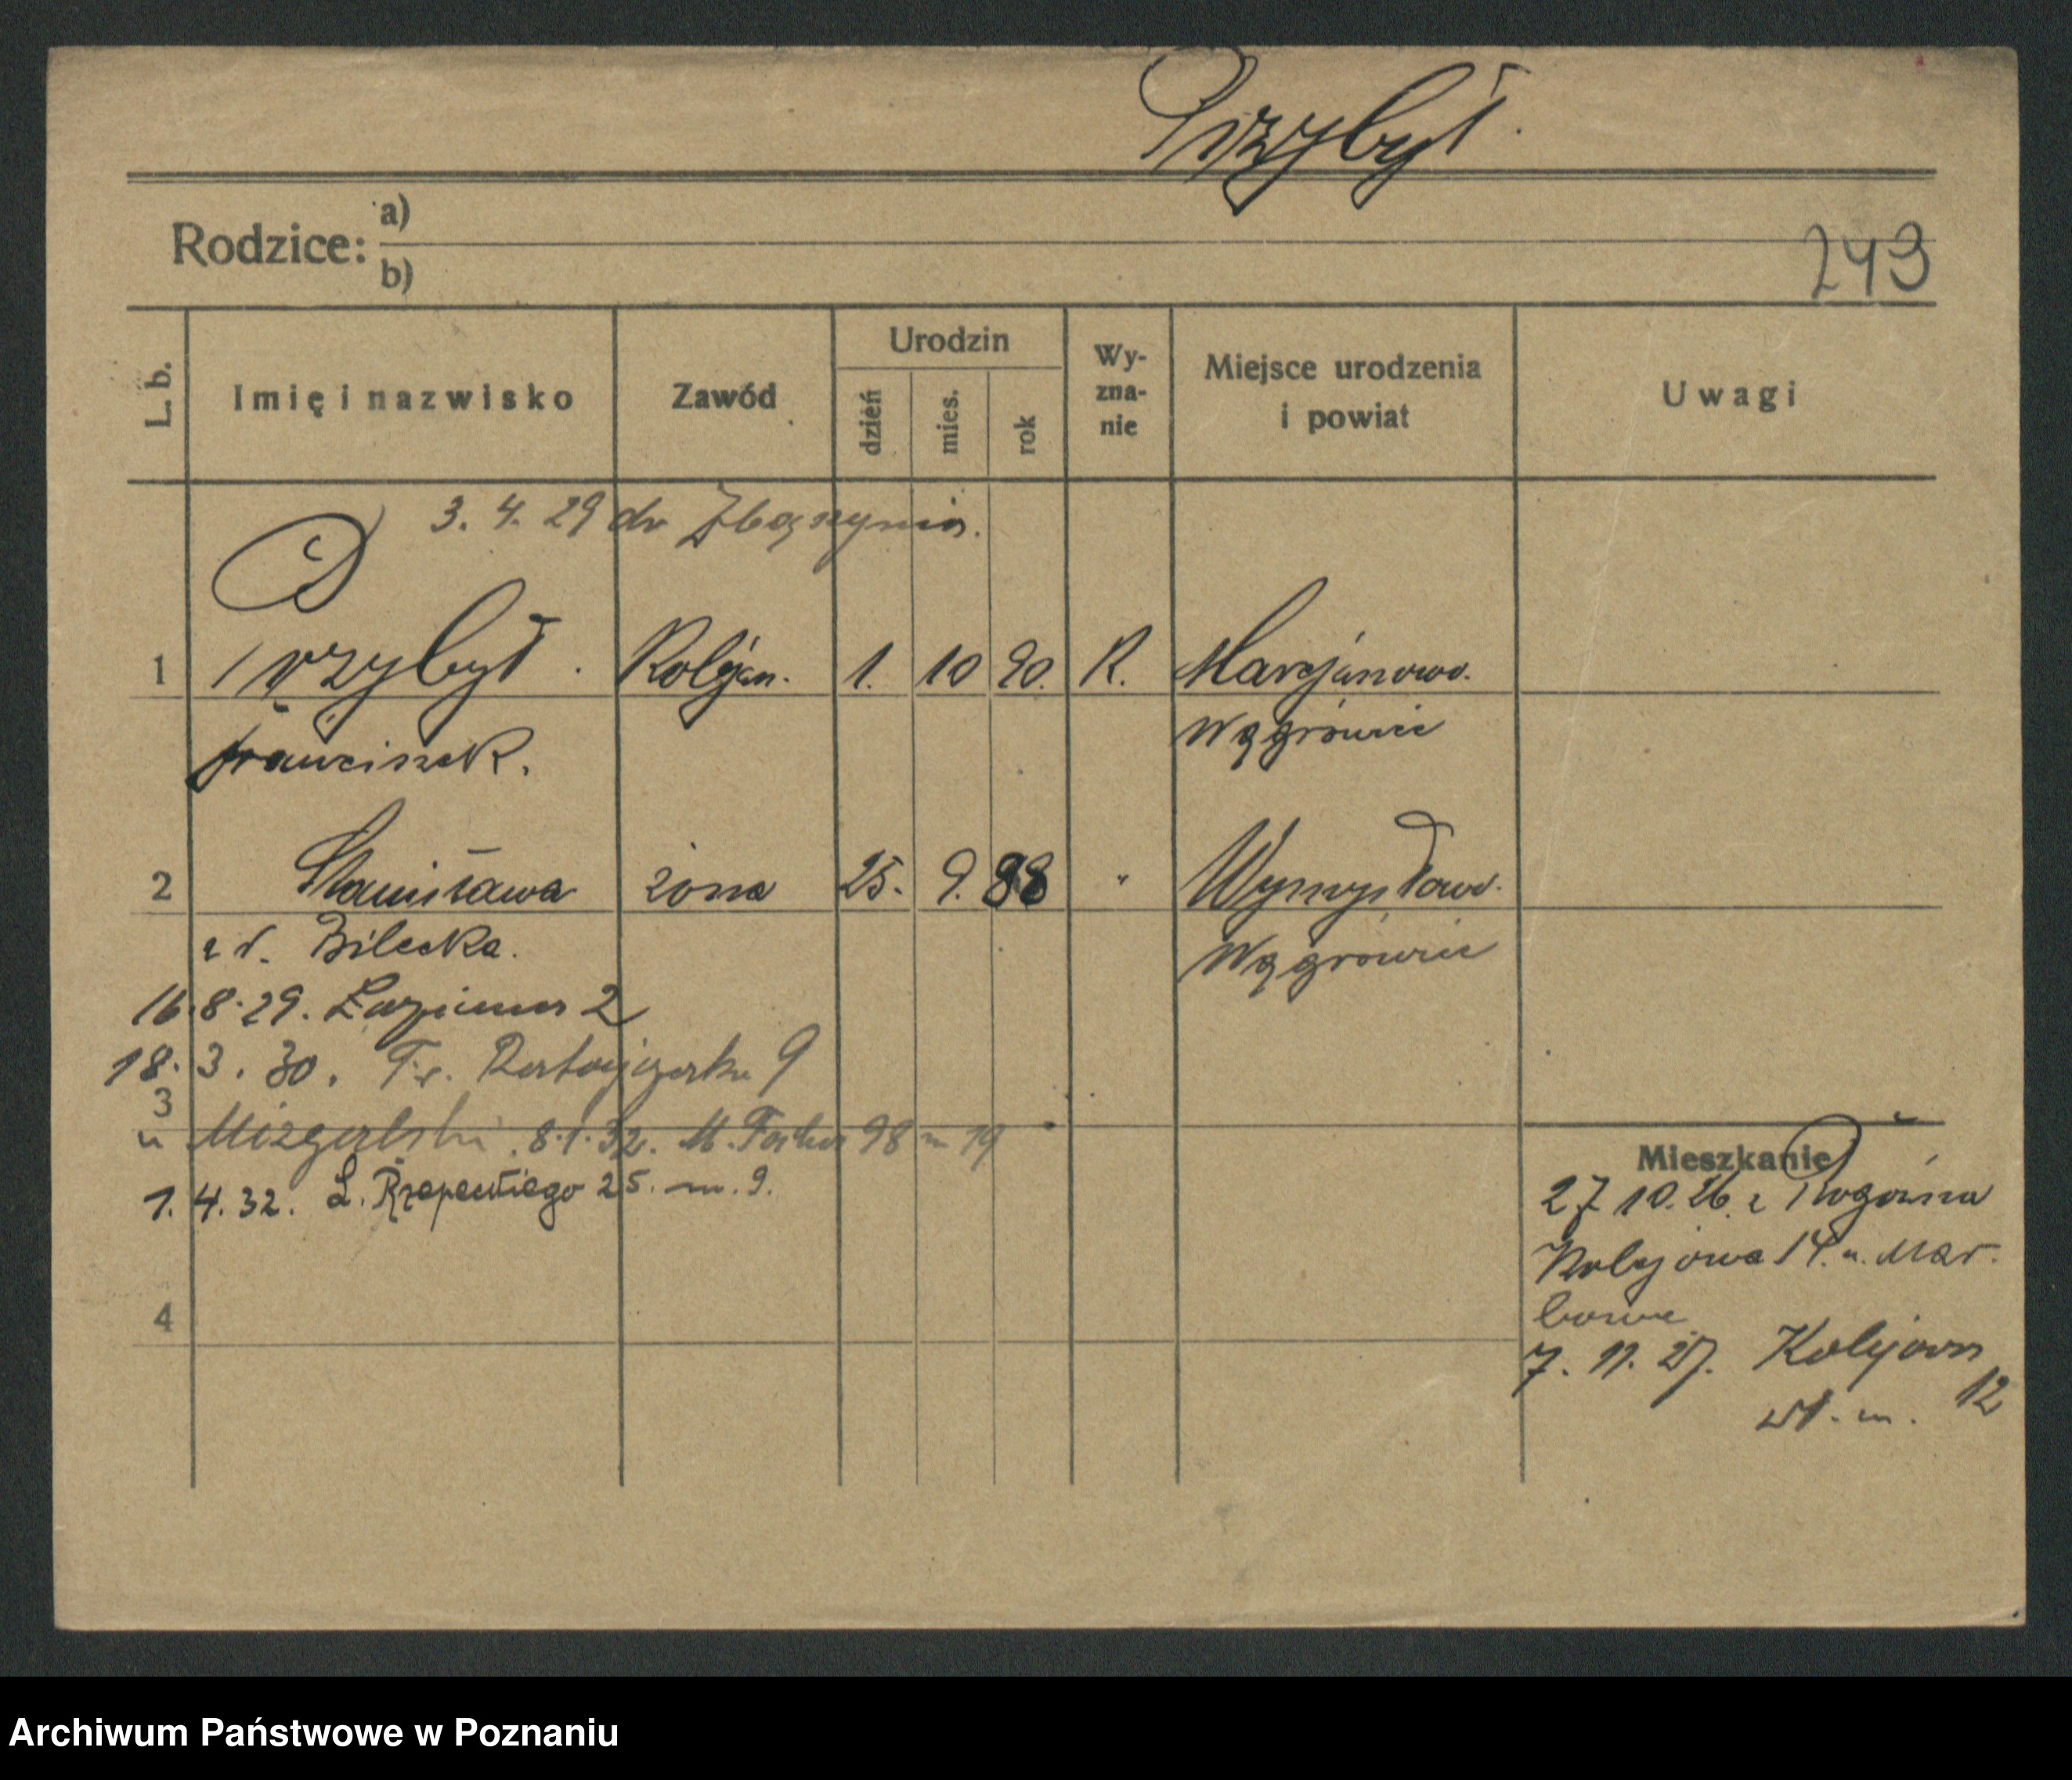 Przybył.
Rodzice: a)
b)
243
L. b.
Imię i nazwisko
Zawód
Urodzin
dzień
mies.
rok
Wy-
zna-
nie
Miejsce urodzenia
i powiat
Uwagi
3. 4. 29 do Zbąszynia.
1 Przybył. Kolejan. 1. 10 90. R. Marcjanowo.
Franciszek. Wągrówiec
2 Stanisława żona 25. 9. 88 " Wymysłowo.
z d. Bilecka. Wągrówiec
16.8.29. Łazienna 2
18. 3. 30. Fr. Ratajczaka 9
3
u Mizgalski. 8.1.32. M. Focha 98 m 19
1. 4. 32. L. Rzepeckiego 25. m. 9.
4
Mieszkanie
27 10. 26. z Rogoźna
Kolejowa 14. u. Mar.
7. 11. 27. Kolejowa
12